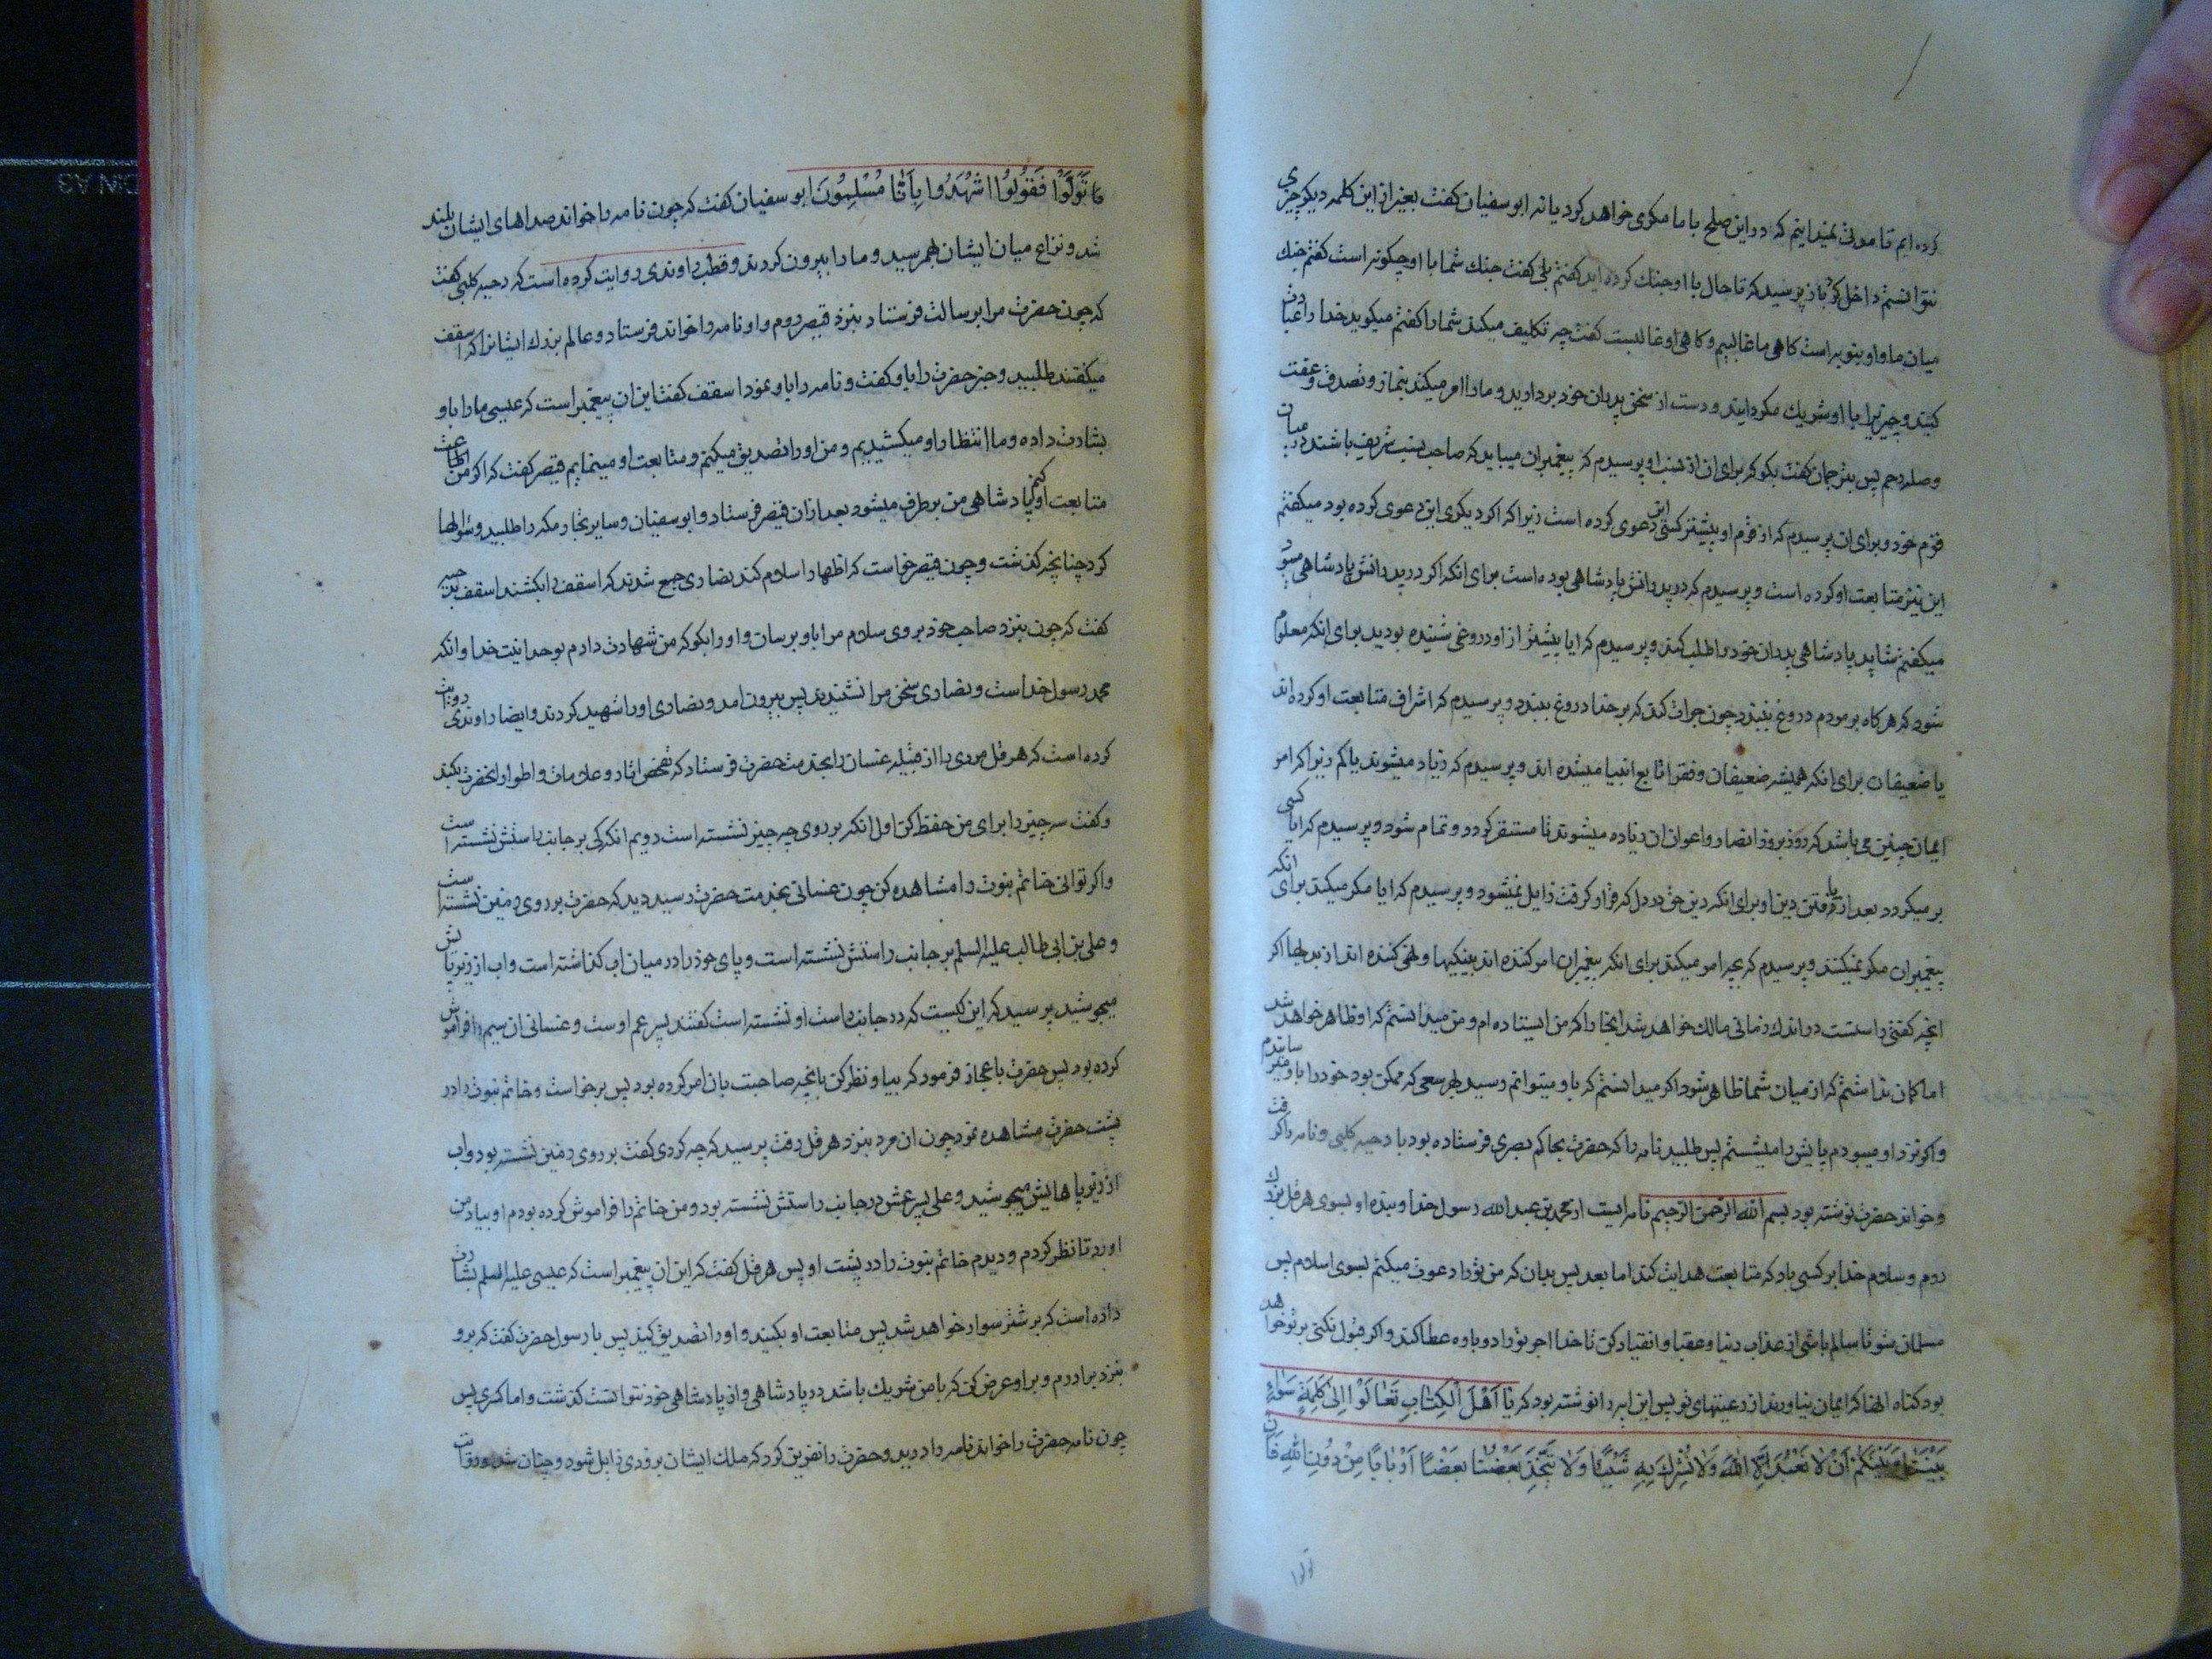 كرده ايم تا مدتى نميدانيم كه در اين صلح با ما مكرى خواهد كرد يا نه ابو سفيان كفت بغير از اين كلمه ديكر چيزى
نتوانستم داخل كرد باز پرسيد كه تا حال با او جنك كرده ايد كفتم بلى كفت جنك شما با او چكونه است كفتم جنك
ميان ما و او بنوبه است كاهى ما غالبيم و كاهى او غالبست كفت چه تكليف ميكند شما را كفتم ميكويد خدا را عبادت
كنيد و چيزيرا با او شريك مكردانيد و دست از سخن پدران خود برداريد و ما را امر ميكند بنماز و تصدق و عفت
و صله رحم پس بترجمان كفت بكو كه براى ان از نسب او پرسيدم كه پيغمبران ميبايد كه صاحب نسب شريف باشند در ميان
قوم خود و براى ان پرسيدم كه از قوم او پيشتر كسى اين دعوى كرده است زيرا كه اكر ديكرى اين دعوى كرده بود ميكفتم
اين نيز متابعت او كرده است و پرسيدم كه در پدرانش پادشاهى بوده است براى انكه اكر در پدرانش پادشاهى ميبود
ميكفتم شايد پادشاهى پدران خود را طلب كند و پرسيدم كه ايا پيشتر از او دروغى شنيده بوديد براى انكه معلوم
شود كه هركاه بر مردم دروغ نبندد چون جرات كند كه بر خدا دروغ ببندد و پرسيدم كه اشراف متابعت او كرده اند
يا ضعيفان براى انكه هميشه ضعيفان و فقرا تابع انبيا ميشده اند و پرسيدم كه زياد ميشوند يا كم زيرا كه امر
ايمان چنين مى باشد كه روز بروز انصار و اعوان ان زياده ميشوند تا مستقر كردد و تمام شود و پرسيدم كه ايا كسى
بر ميكردد بعد از يافتن دين او براى انكه دين حق در دل كه قرار كرفت زايل نميشود و پرسيدم كه ايا مكر ميكند براى انكه
پيغمبران مكر نميكنند و پرسيدم كه بچه امر ميكند براى انكه پيغمبران امر كننده اند بنيكيها و نهى كننده اند از بديها اكر
انچه كفتى راستست در اندك زمانى مالك خواهد شد اينجا را كه من ايستاده ام و من ميدانستم كه او ظاهر خواهد شد
اما كمان نداشتم كه از ميان شما ظاهر شود اكر ميدانستم كه باو ميتوانم رسيد بهر سعى كه ممكن بود خود را باو ميرساندم
و اكر نزد او ميبودم پايش را ميشستم پس طلبيد نامه را كه حضرت بحاكم بصرى فرستاده بود با دحيه كلبى و نامه را كرفت
و خواند حضرت نوشته بود بسم الله الرحمن الرحيم نامه ايست از محمد بن عبد الله رسول خدا و بنده او بسوى هرقل بزرك
روم و سلام خدا بر كسى باد كه متابعت هدايت كند اما بعد پس بدان كه من تو را دعوت ميكنم بسوى اسلام پس
مسلمان شو تا سالم باشى از عذاب دنيا و عقبا و انقياد كن تا خدا اجر تو را دوباره عطا كند و اكر قبول نكنى بر تو خواهد
بود كناه انها كه ايمان نياورند از رعيتهاى تو پس اين ايه را نوشته بود كه يَا اَهْلَ الْكِتَابِ تَعَالَوْا اِلىٰ كَلِمَةٍ سَوَاءٍ
بَيْنَنَا وَبَيْنَكُمْ اَنْ لَا نَعْبُدَ اِلَّا اللهَ وَلَا نُشْرِكَ بِهِ شَيْئًا وَلَا يَتَّخِذَ بَعْضُنَا بَعْضًا اَرْبَابًا مِنْ دُونِ اللهِ فَاِنْ
تولوا
تَوَلَّوْا فَقُولُوْا اشْهَدُوا بِاَنَّا مُسْلِمُونَ ابو سفيان كفت كه چون نامه را خواند صداهاى ايشان بلند
شد و نزاع ميان ايشان بهم رسيد و ما را بيرون كردند و قطب راوندى روايت كرده است كه دحيه كلبى كفت
كه چون حضرت مرا برسالت فرستاد بنزد قيصر روم و او نامه را خواند فرستاد و عالم بزرك ايشانرا كه اسقف
ميكفتند طلبيد و خبر حضرت را باو كفت و نامه را باو نمود اسقف كفت اين ان پيغمبر است كه عيسى ما را باو
بشارت داده و ما انتظار او ميكشيديم و من او را تصديق ميكنم و متابعت او مينمايم قيصر كفت كه اكر من اطاعت
متابعت او كنم پادشاهى من بر طرف ميشود بعد از ان قيصر فرستاد و ابو سفيان و ساير تجار مكه را طلبيد و سؤالها
كرد چنانچه كذشت و چون قيصر خواست كه اظهار اسلام كند نصارى جمع شدند كه اسقف را بكشند اسقف بدحيه
كفت كه چون بنزد صاحب خود بروى سلام مرا باو برسان و او را بكو كه من شهادت دادم بوحدانيت خدا و انكه
محمد رسول خداست و نصارى سخن مرا نشنيدند پس بيرون امد و نصارى او را شهيد كردند و ايضا راوندى روايت
كرده است كه هرقل مردى را از قبيله غسان را بخدمت حضرت فرستاد كه تفحص اثار و علامات و اطوار انحضرت بكند
و كفت سه چيز را براى من حفظ كن اول انكه بر روى چه چيز نشسته است دويم انكه كى بر جانب راستش نشسته است
و اكر توانى خاتم نبوت را مشاهده كن چون غسانى بخدمت حضرت رسيد ديد كه حضرت بر روى زمين نشسته است
و على بن ابى طالب عليه السلم بر جانب راستش نشسته است و پاى خود را در ميان اب كذاشته است و اب از زير پايش
ميجوشيد پرسيد كه اين كيست كه در جانب راست او نشسته است كفتند پسر عم اوست و غسانى ان سيم را فراموش
كرده بود پس حضرت باعجاز فرمود كه بيا و نظر كن بانچه صاحبت بان امر كرده بود پس برخواست و خاتم نبوت را در
پشت حضرت مشاهده نمود چون ان مرد بنزد هرقل رفت پرسيد كه چه كردى كفت بر روى زمين نشسته بود و اب
از زير پاهايش ميجوشيد و على پسر عمش در جانب راستش نشسته بود و من خاتم را فراموش كرده بودم او بياد من
اورد تا نظر كردم و ديدم خاتم نبوت را در پشت او پس هرقل كفت كه اين ان پيغمبر است كه عيسى عليه السلم بشارت
داده است كه بر شتر سوار خواهد شد پس متابعت او بكنيد و او را تصديق كنيد پس با رسول حضرت كفت كه برو
بنزد برادرم و بر او عرض كن كه با من شريك باشد در پادشاهى و از پادشاهى خود نتوانست كذشت و اما كسرى پس
چون نامه حضرت را خواند نامه را دريد و حضرت را نفرين كرد كه ملك ايشان بزودى زايل شود و چنان شد و روايت